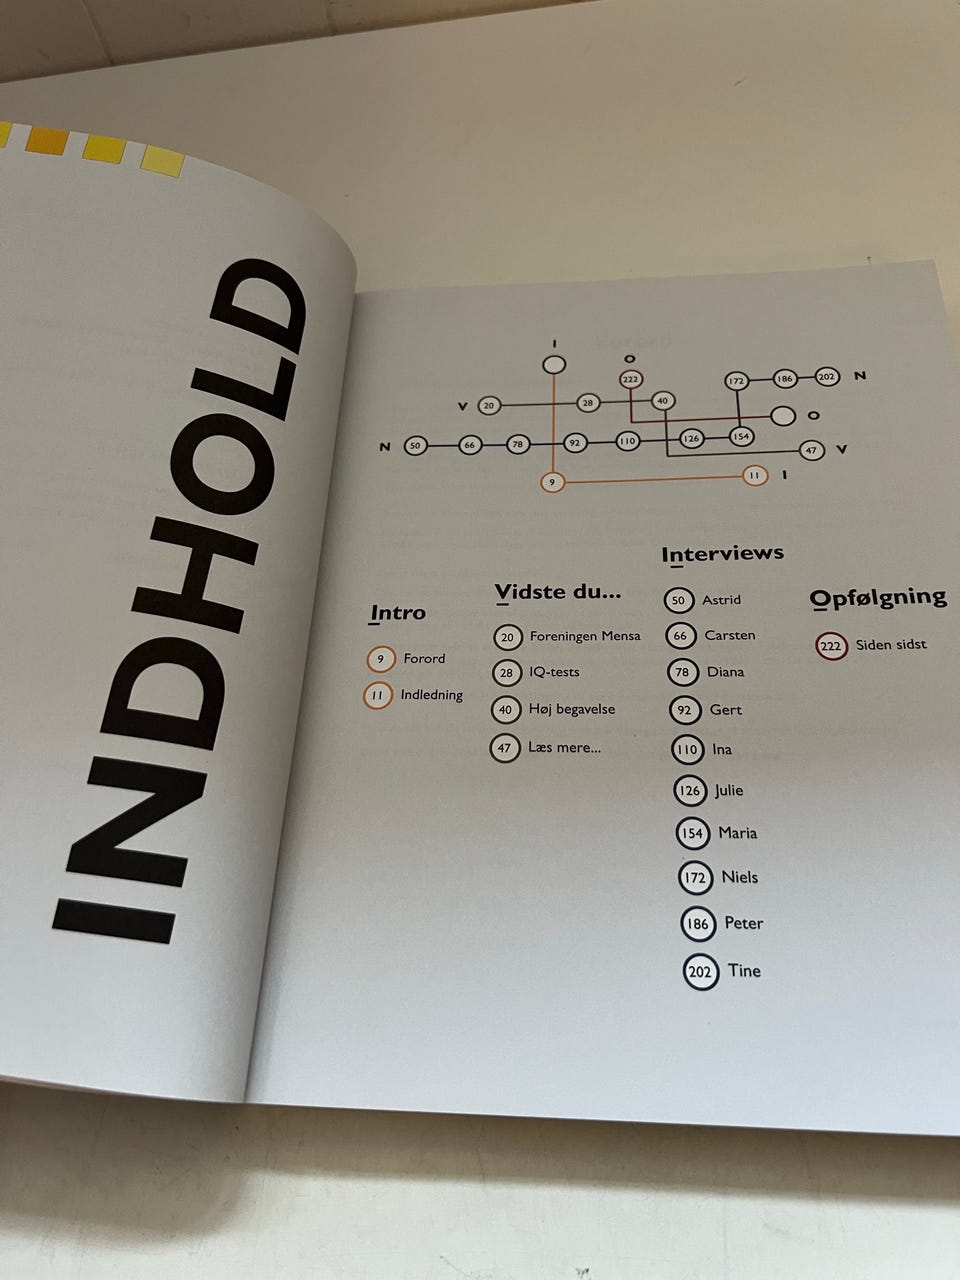 INDHOLD
I
O
222
172
186
202
N
V
20
28
40
O
N
50
66
78
92
110
126
154
47
V
9
11
I
Intro
9 Forord
11 Indledning
Vidste du...
20 Foreningen Mensa
28 IQ-tests
40 Høj begavelse
47 Læs mere...
Interviews
50 Astrid
66 Carsten
78 Diana
92 Gert
110 Ina
126 Julie
154 Maria
172 Niels
186 Peter
202 Tine
Opfølgning
222 Siden sidst